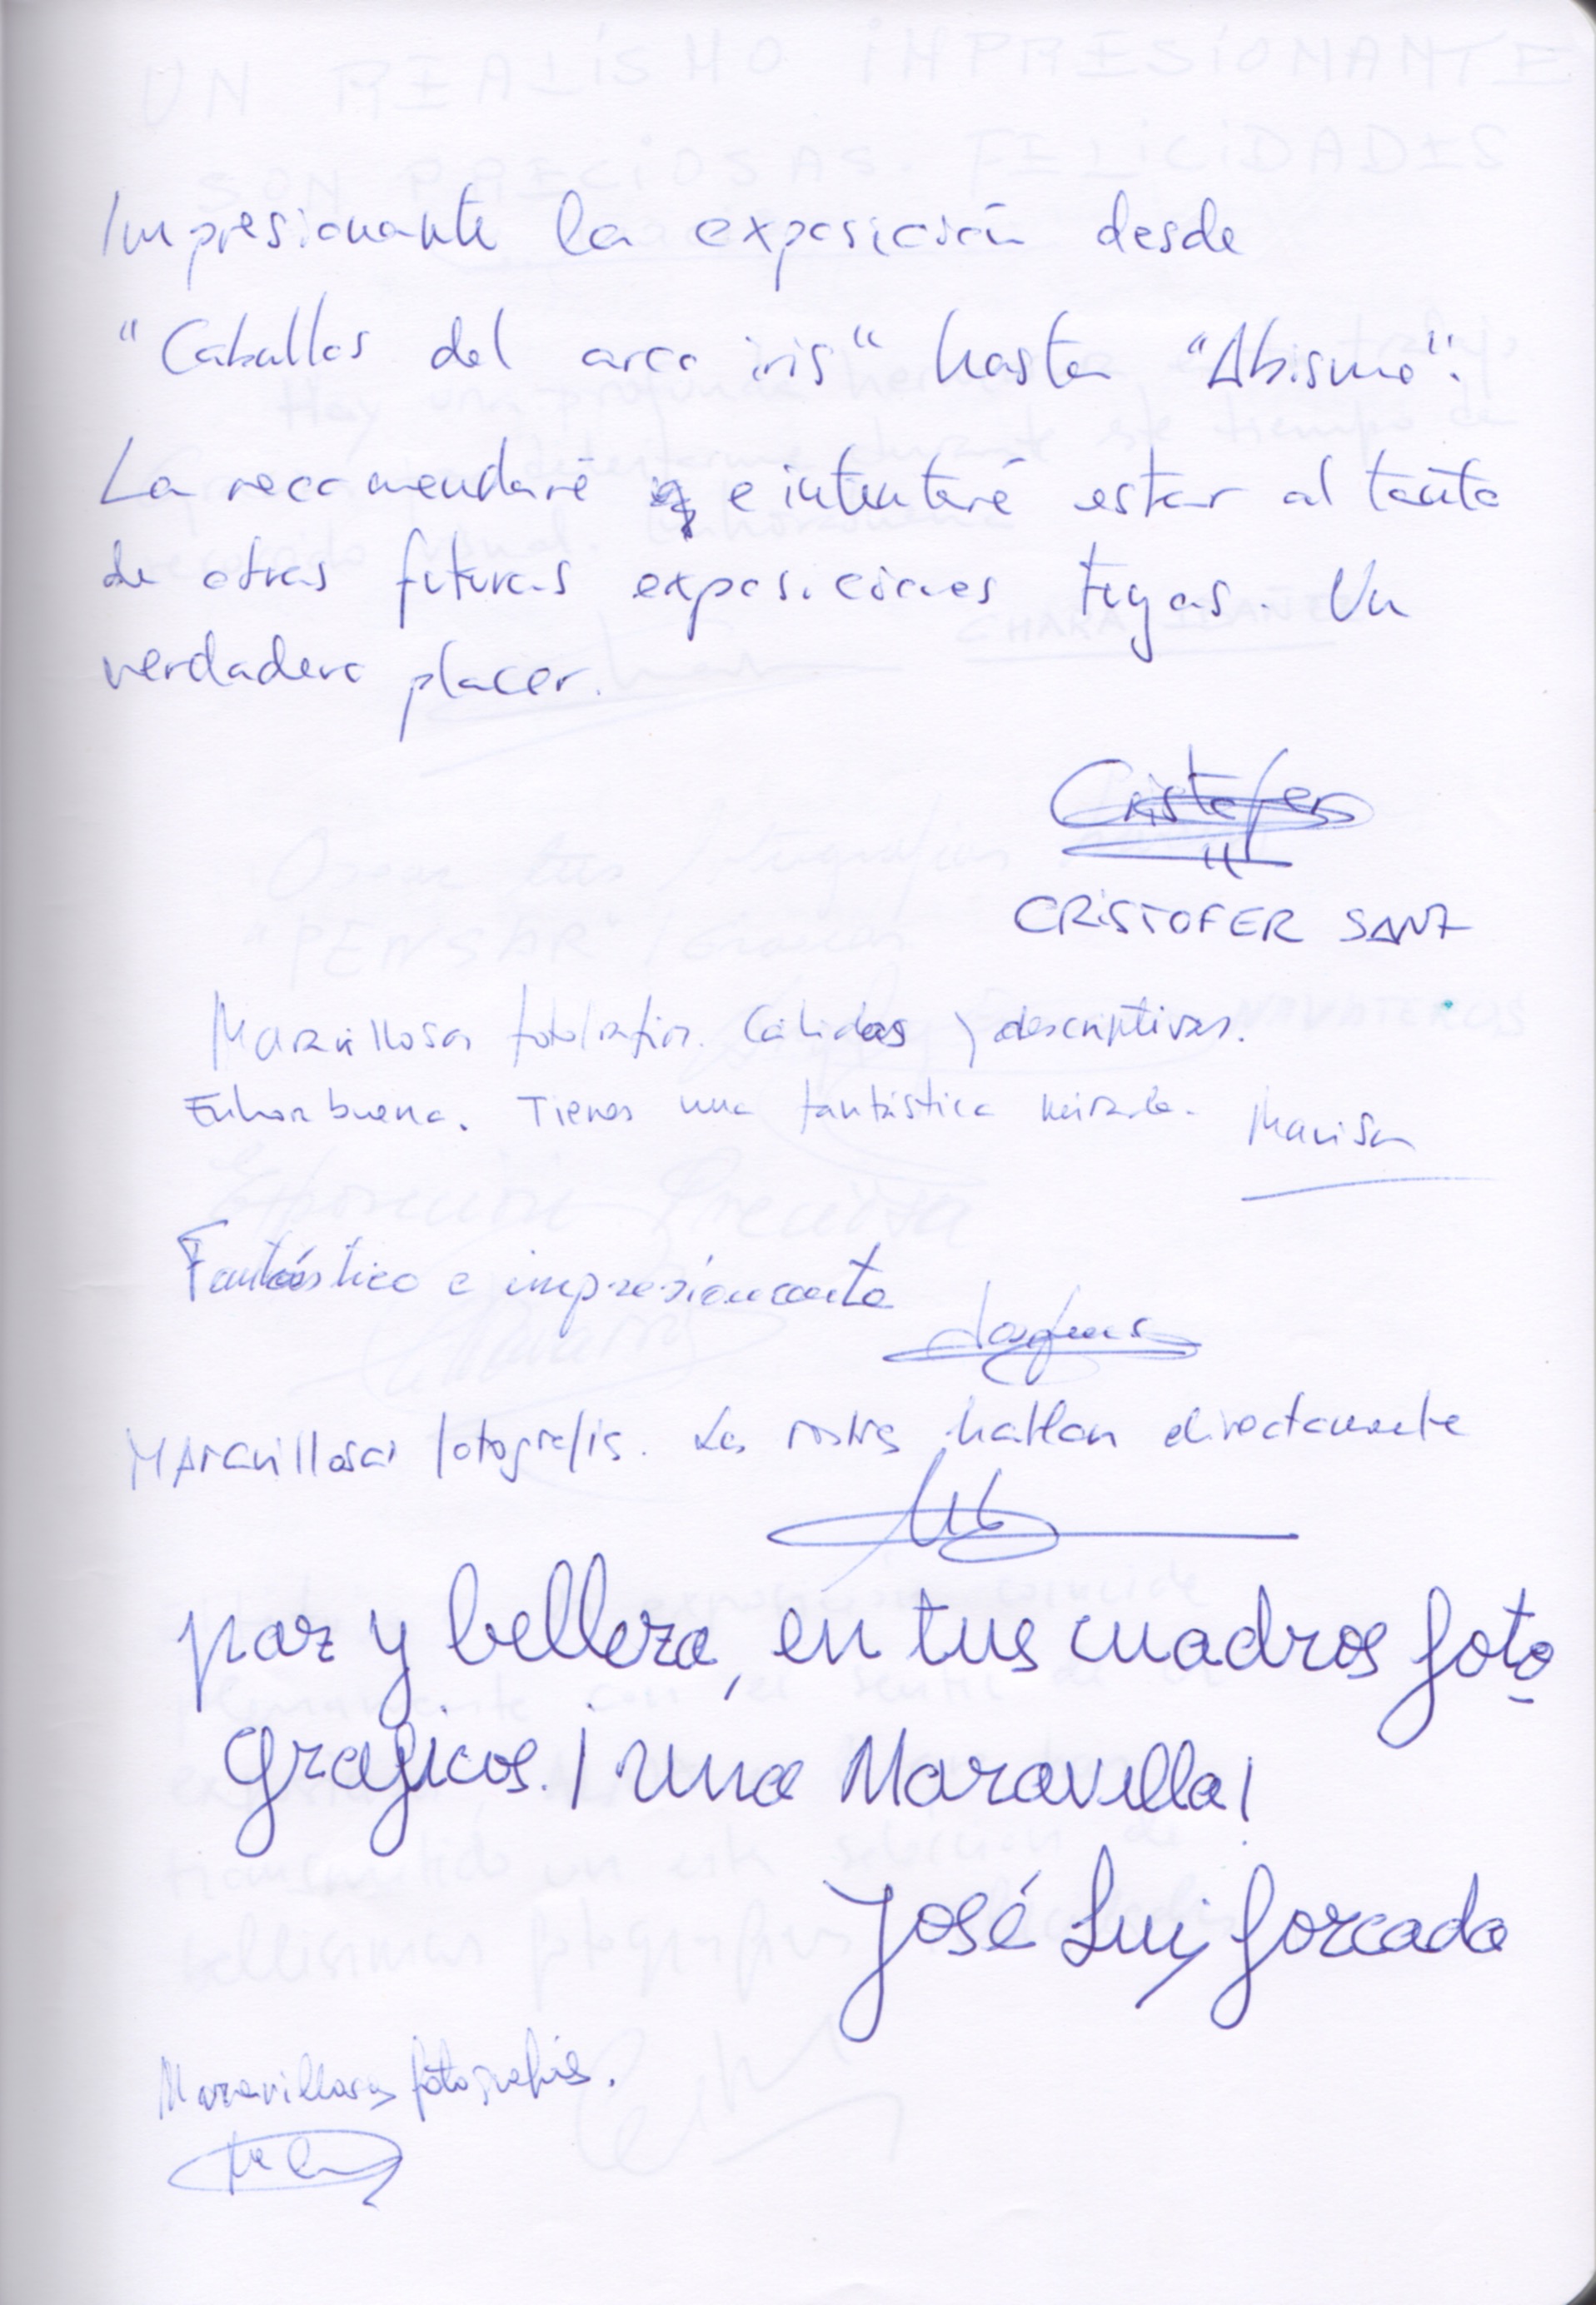 Impresionante la exposición desde
"Caballos del arco iris" hasta "Abismo".
La recomendaré e intentaré estar al tanto
de otras futuras exposiciones tuyas. Un
verdadero placer.
Cristofer
CRISTOFER SANZ
Maravillosas fotografías. Cálidas y descriptivas.
Enhorabuena. Tienes una fantástica mirada. Marisa
Fantástico e impresionante
Maravillosas fotografías. Los rostros hablan directamente
paz y belleza, en tus cuadros foto
graficos. ¡una Maravilla!
José Luis forcada
Maravillosas fotografías.